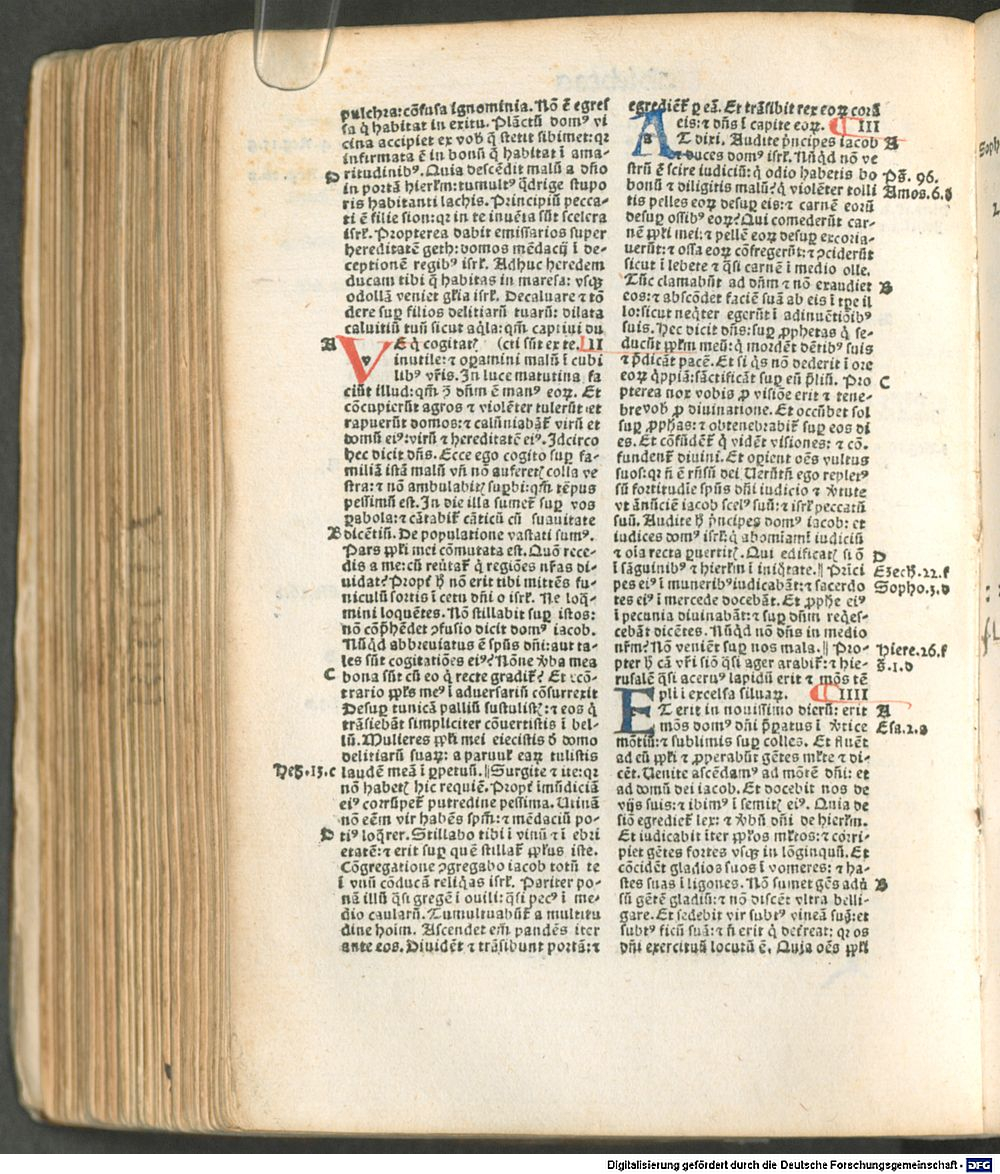 pulchra: cōfusa ignominia. Nō ē egres
sa q̄ habitat in exitu. Plāctū domꝰ vi
cina accipiet ex vob̄ q̄ stetit sibimet: qꝛ
infirmata ē in bonū q̄ habitat ī ama-
D
ritudinibꝰ. Quia descēdit malū a dn̄o
in portā hierłm: tumultꝰ q̄drige stupo
ris habitanti lachis. Principiū pecca-
ti ē filie sion: qꝛ in te inuēta sūt scelera
isrł. Propterea dabit emissarios super
hereditatē geth: domos mēdacij ī de-
ceptionē regibꝰ isrł. Adhuc heredem
ducam tibi q̄ habitas in maresa: vsq̄ꝫ
odollā veniet gl̄ia isrł. Decaluare ⁊ tō
dere suꝑ filios delitiarū tuarū: dilata
caluitiū tuū sicut aq̄la: qm̄ captiui du
A
VE q̄ cogitatꝭ (cti sūt ex te. II
inutile: ⁊ oꝑamini malū ī cubi
libꝰ vr̄is. In luce matutina fa
ciūt illud: qm̄ ꝯ̄ dn̄m ē manꝰ eoꝝ. Et
cōcupierūt agros ⁊ violēter tulerūt: et
rapuerūt domos: ⁊ calūniabāt̄ virū et
domū eiꝰ: virū ⁊ hereditatē eiꝰ. Idcirco
hec dicit dn̄s. Ecce ego cogito suꝑ fa-
miliā istā malū vn̄ nō auferetꝭ colla ve
stra: ⁊ nō ambulabitꝭ suꝑbi: qm̄ tēpus
pessimū est. In die illa sumet̄ suꝑ vos
ꝑabola: ⁊ cātabit̄ cāticū cū suauitate
B
dicētiū. De populatione vastati sumꝰ.
Pars ppłi mei cōmutata est. Quō rece-
dis a me: cū reūtat̄ q̄ regiōes nr̄as di-
uidat? Propt̄ h̄ nō erit tibi mittēs fu-
niculū sortis ī cetu dn̄i o isrł. Ne loq̄-
mini loquētes. Nō stillabit suꝑ istos:
nō cōp̄hēdet ꝯfusio dicit domꝰ iacob.
Nūq̄d abbreuiatus ē spūs dn̄i: aut ta-
les sūt cogitatiōes eiꝰ? Nōne v̄ba mea
C
bona sūt cū eo q̄ recte gradit̄? Et ecō-
trario ppłs meꝰ ī aduersariū cōsurrexit
Desuꝑ tunicā palliū sustulistꝭ: ⁊ eos q̄
trāsiebāt simpliciter cōuertistis ī bel-
lū. Mulieres ppłi mei eiecistis d̄ domo
delitiarū suaꝝ: a paruuł eaꝝ tulistis
Heb̄.13.c
laudē meā ī ꝑpetuū. || Surgite ⁊ ite: qꝛ
nō habetꝭ hic requiē. Propt̄ imūdiciā
eiꝰ corrūpet̄ putredine pessima. Utinā
nō eēm vir habēs spm̄: ⁊ mēdaciū po-
D
tiꝰ loq̄rer. Stillabo tibi ī vinū ⁊ ī ebri
etatē: ⁊ erit suꝑ quē stillat̄ ppłus iste.
Cōgregatione ꝯgregabo iacob totū te
ī vnū cōducā reliq̄as isrł. Pariter po-
nā illū q̄si gregē ī ouili: q̄si pecꝰ ī me-
dio caularū. Tumultuabūt̄ a multitu
dine hoim̄. Ascendet em̄ pandēs iter
ante eos. Diuidēt ⁊ trāsibunt portā: ⁊
egrediēt̄ ꝑ eā. Et trāsibit rex eoꝝ corā
eis: ⁊ dn̄s ī capite eoꝝ. III
AT dixi. Audite p̄ncipes iacob
A
et duces domꝰ isrł. Nūq̄d nō ve
strū ē scire iudiciū: q̄ odio habetis bo
Ps̄. 96.
bonū ⁊ diligitis malū? q̄ violēter tolli
Amos.6.d
tis pelles eoꝝ desuꝑ eis: ⁊ carnē eorū
desuꝑ ossibꝰ eoꝝ? Qui comederūt car-
nē ppłi mei: ⁊ pellē eoꝝ desuꝑ excoria-
uerūt: ⁊ ossa eoꝝ cōfregerūt: ⁊ ꝯciderūt
sicut ī lebete ⁊ q̄si carnē ī medio olle.
Tūc clamabūt ad dn̄m ⁊ nō exaudiet
B
eos: ⁊ abscōdet faciē suā ab eis ī tꝑe il
lo: sicut neq̄ter egerūt ī adinuētiōibꝰ
suis. Hec dicit dn̄s: suꝑ ꝓphetas q̄ se-
ducūt ppłm meū: q̄ mordēt dētibꝰ suis
⁊ p̄dicāt pacē. Et si q̄s nō dederit ī ore
eoꝝ q̄ppiā: sāctificāt suꝑ eū p̄liū. Pro
C
pterea nox vobis ꝓ visiōe erit ⁊ tene-
bre vob̄ ꝓ diuinatione. Et occūbet sol
suꝑ ꝓph̄as: ⁊ obtenebrabit̄ suꝑ eos di
es. Et cōfūdēt̄ q̄ vidēt visiones: ⁊ cō-
fundent̄ diuini. Et oꝑient oēs vultus
suos: qꝛ n̄ ē rn̄sū dei Uerūtn̄ ego repletꝰ
sū fortitudīe spūs dn̄i iudicio ⁊ v̄tute
vt ānūciē iacob scelꝰ suū: ⁊ isrł peccatū
suū. Audite h̄ p̄ncipes domꝰ iacob: et
iudices domꝰ isrł: q̄ abomīamī iudiciū
⁊ oīa recta ꝑuertitꝭ. Qui edificatꝭ siō
D
ī sāguinibꝰ ⁊ hierłm ī iniq̄tate. || Prīci
Ezech̄.22.f
pes eiꝰ ī muneribꝰ iudicabāt: ⁊ sacerdo
Sopho.3.d
tes eiꝰ ī mercede docebāt. Et ꝓph̄e eiꝰ
ī pecunia diuinabāt: ⁊ suꝑ dn̄m req̄es-
cebāt dicētes. Nūq̄d nō dn̄s in medio
nr̄m? Nō veniēt suꝑ nos mala. || Pro-
Hiere.26.f
pter h̄ cā vr̄i siō q̄si ager arabit̄: ⁊ hie-
s̄.1.d
rusalē q̄si aceruꝰ lapidū erit ⁊ mōs tē
pli ī excelsa siluaꝝ. IIII
ET erit in nouissimo dierū: erit
A
mōs domꝰ dn̄i p̄paratus ī v̄tice
Esa.2.a
mōtiū: ⁊ sublimis suꝑ colles. Et fluēt
ad eū ppłi ⁊ ꝓperabūt gētes ml̄te ⁊ di-
cēt. Uenite ascēdamꝰ ad mōtē dn̄i: et
ad domū dei iacob. Et docebit nos de
vijs suis: ⁊ ibimꝰ ī semitꝭ eiꝰ. Quia de
siō egrediet̄ lex: ⁊ v̄bū dn̄i de hierłm.
Et iudicabit īter ppłos ml̄tos: ⁊ corri-
piet gētes fortes vsq̄ꝫ in lōginquū. Et
cōcidēt gladios suos ī vomeres: ⁊ ha-
stes suas ī ligones. Nō sumet gēs adū
B
sū gētē gladiū: ⁊ nō discēt vltra belli-
gare. Et sedebit vir subtꝰ vineā suā: et
subtꝰ ficū suā: ⁊ n̄ erit q̄ deterreat: qꝛ os
dn̄i exercituū locutū ē. Quia oēs ppłi
Digitalisierung gefördert durch die Deutsche Forschungsgemeinschaft - DFG